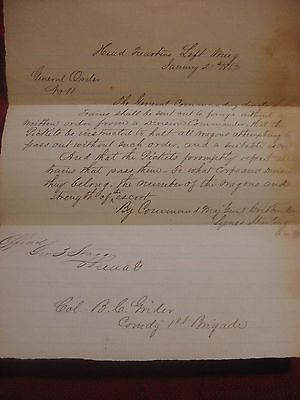 Head Quarters Left Wing
January 21st 1863
General Order
No 11
The General Commanding directs
trains shall be sent out to forage without
written order from a Division Commander that the
Pickets be instructed to halt all wagons attempting
pass out without such order, and a suitable escort
And that the Pickets promptly report
trains that pass them - to what Corps and Division
they belong, the number of the wagons and
strength of the escort
By Command Maj Genl Crittenden
Lyne Starling
Official
Geo
Col B. C. Grider
Comdg 1st Brigade